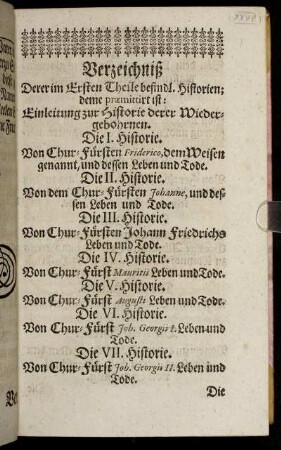 Verzeichniß
Derer im Ersten Theile befindl. Historien;
deme præmittirt ist:
Einleitung zur Historie derer Wieder-
gebohrnen.
Die I. Historie.
Von Chur-Fürsten Friderico, dem Weisen
genannt, und dessen Leben und Tode.
Die II. Historie.
Von dem Chur-Fürsten Johanne, und des-
sen Leben und Tode.
Die III. Historie.
Von Chur-Fürsten Johann Friedrichs
Leben und Tode.
Die IV. Historie.
Von Chur-Fürst Mauritii Leben und Tode.
Die V. Historie.
Von Chur-Fürst Augusti Leben und Tode.
Die VI. Historie.
Von Chur-Fürst Joh. Georgii I. Leben und
Tode.
Die VII. Historie.
Von Chur-Fürst Joh. Georgii II. Leben und
Tode.
Die